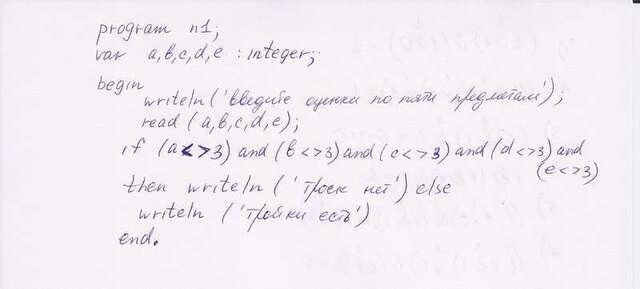 program n1;
var a,b,c,d,e : integer;
begin
writeln('введите оценки по пяти предметам');
read (a,b,c,d,e);
if (a<>3) and (b<>3) and (c<>3) and (d<>3) and
(e<>3)
then writeln ('троек нет') else
writeln ('тройки есть')
end.